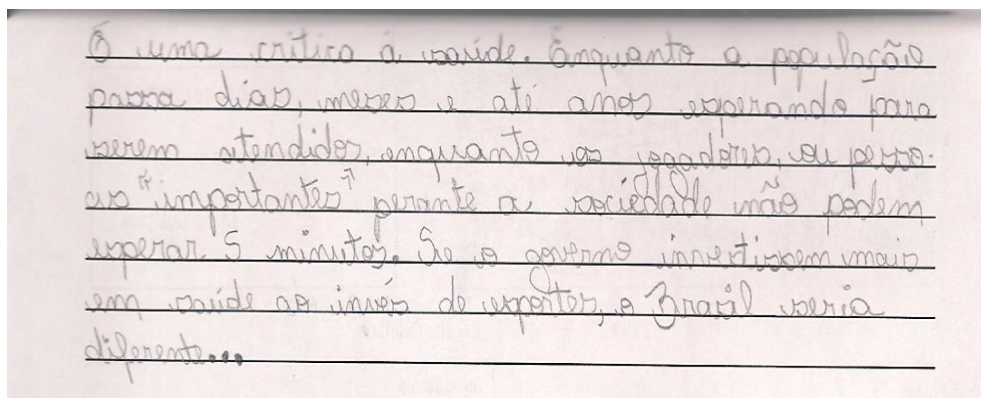 É uma crítica a saúde. Enquanto a população
passa dias, meses e até anos esperando para
serem atendidos, enquanto os jogadores, ou pesso-
as "importantes" perante a sociedade não podem
esperar 5 minutos. Se o governo investissem mais
em saúde ao invés de esportes, o Brasil seria
diferente...